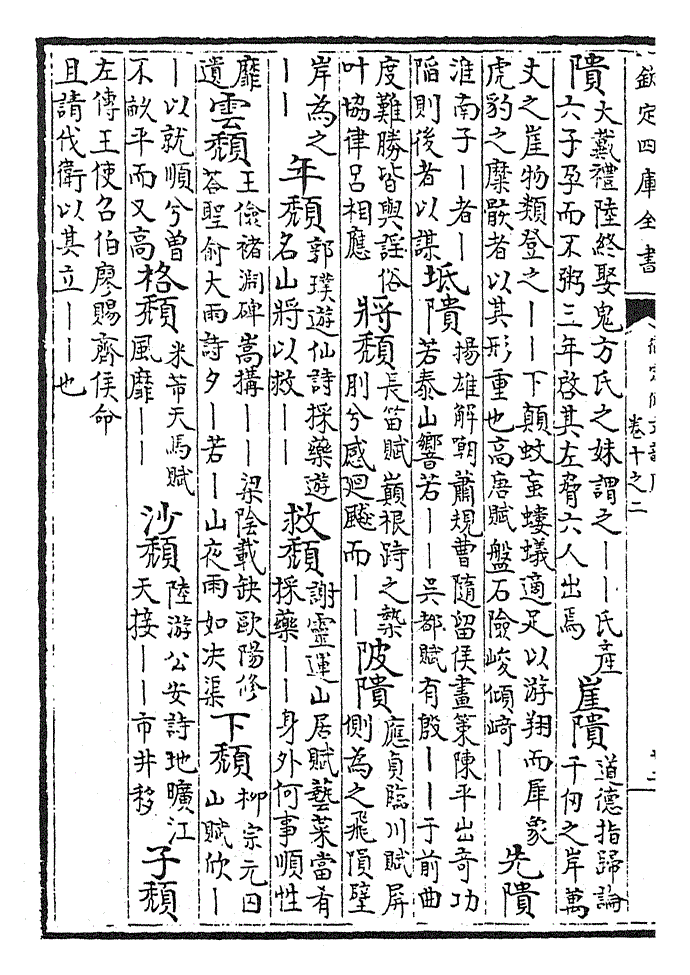 欽定四庫全書
御定佩文韻府
卷十之二
隤
大戴禮陸終娶鬼方氏之妹謂之——氏產
六子孕而不粥三年啓其左脅六人出焉
崖隤
道德指歸論
千仞之岸萬
丈之崖物類登之——下顛蚊䖟螻蟻適足以游翔而犀象
虎豹之糜骸者以其形重也高唐賦盤石險峻傾﨑——
先隤
淮南子—者—
陷則後者以謀
坻隤
揚雄解嘲蕭規曹隨留侯畫策陳平出奇功
若泰山響若——吳都賦有殷——于前曲
度難勝皆與謡俗
叶協律呂相應
將頽
長笛賦巔根跱之槷
刖兮感廻飈而——
陂隤
應貞臨川賦屏
側為之飛隕壁
岸為之
——
年頽
郭璞遊仙詩採藥遊
名山將以救——
救頽
謝靈運山居賦藝菜當肴
採藥——身外何事順性
靡
遺
雲頽
王儉褚淵碑嵩搆——梁陰載缺歐陽修
荅聖俞大雨詩夕—若—山夜雨如决渠
下頽
柳宗元囚
山賦欣—
—以就順兮曾
不畝平而又高
格頽
米芾天馬賦
風靡——
沙頽
陸游公安詩地曠江
天接——市井移
子頽
左傳王使召伯廖賜齊侯命
且請伐衛以其立——也